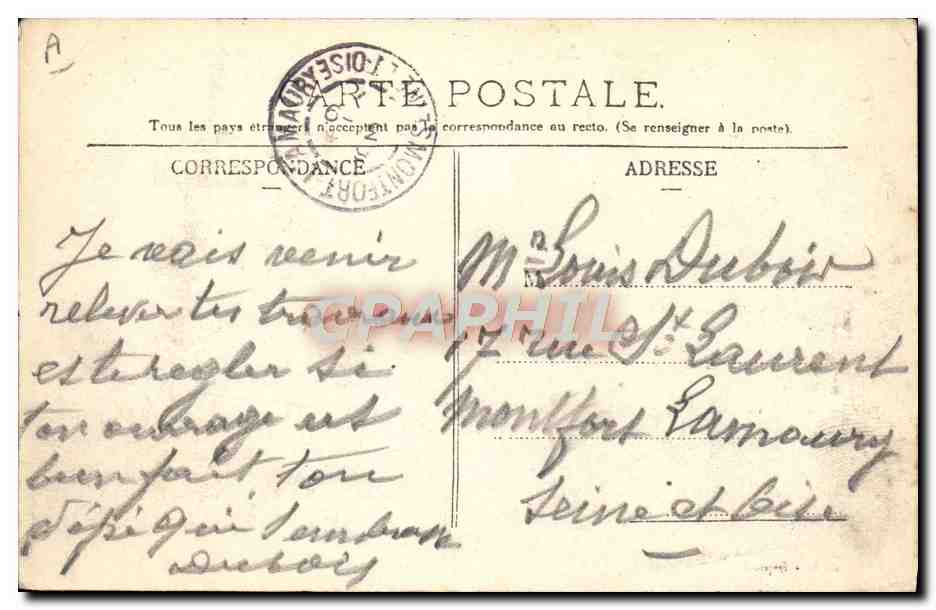 A
CARTE POSTALE.
Tous les pays étrangers n'acceptent pas la correspondance au recto. (Se renseigner à la poste).
CORRESPONDANCE
ADRESSE
MONTFORT-L'AMAURY SEINE-ET-OISE
Je vais venir
relever tes travaux
este regler si
ton ouvrage est
bien fait ton
qui t'embrasse
Dubois
Mr Louis Dubois
M
17 rue St Laurent
Montfort Lamaury
Seine et Oise
CPAPHIL